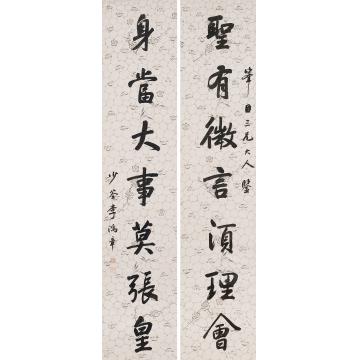 聖有微言須理會
峯三兄大人鑒
身當大事莫張皇
少荃李鴻章